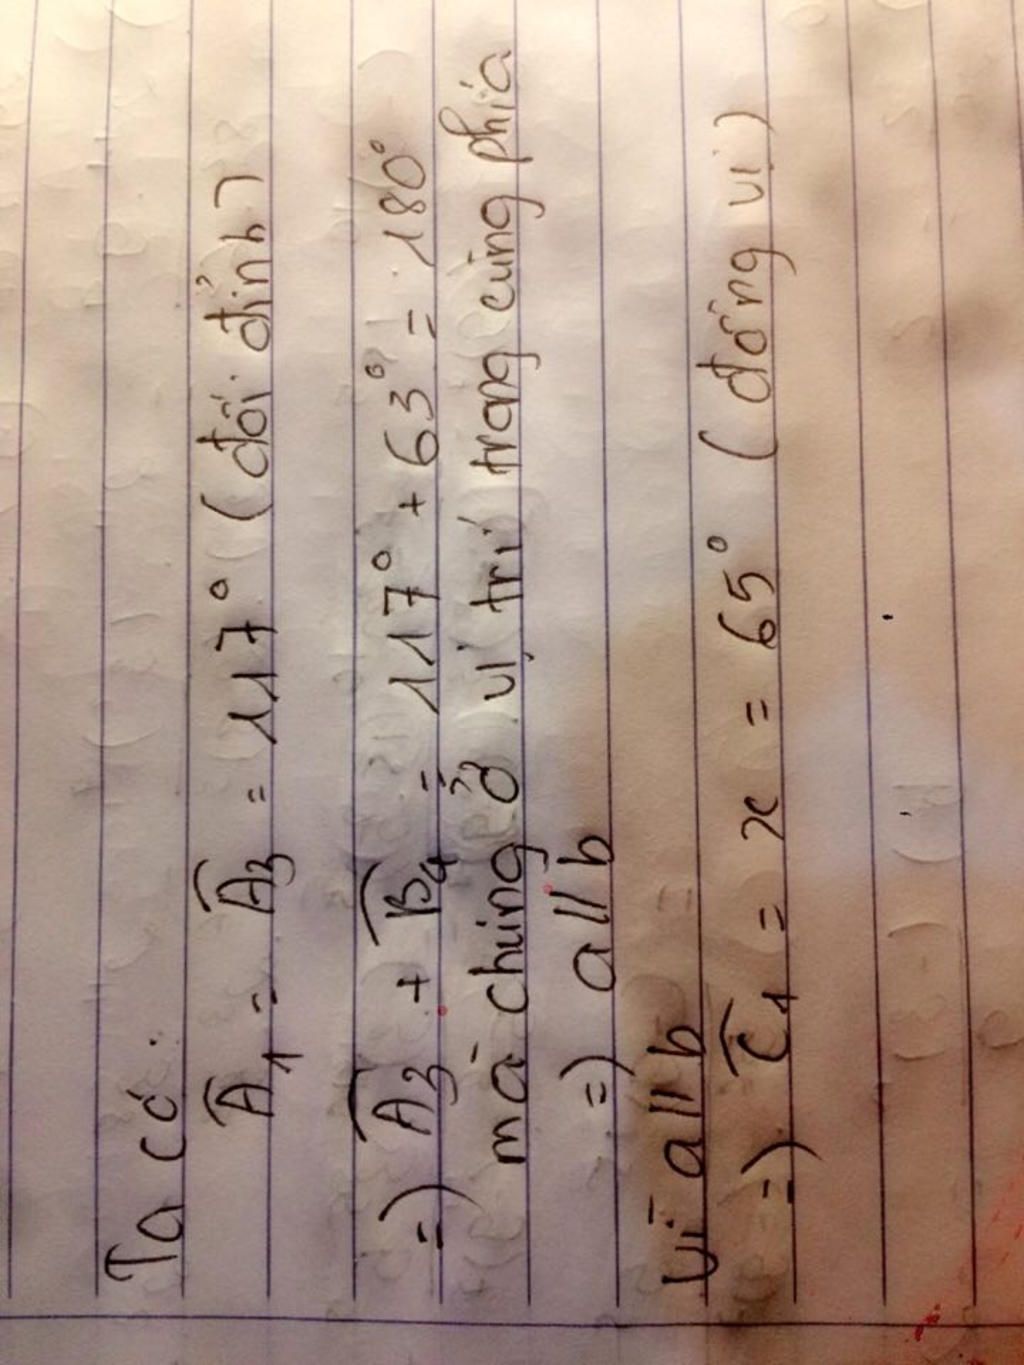 Ta có:
Â₁ = Â₃ = 117° (đối đỉnh)
=) Â₃ + B̂₄ = 117° + 63° = 180°
mà chúng ở vị trí trong cùng phía
=) a // b
Vì a // b
=) Ĉ₁ = x = 65° (đồng vị)